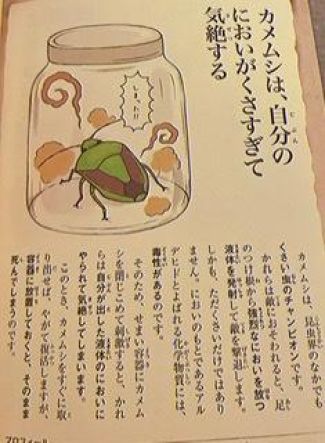 カメムシは、自分の
においがくさすぎて
気絶する
カメムシは、昆虫界のなかでも
くさい虫のチャンピオンです。
かれらは敵におそわれると、足
のつけ根から強烈なにおいを放つ
液体を発射して敵を撃退します。
しかも、ただくさいだけではあり
ません。においのもとであるアル
デヒドとよばれる化学物質には、
毒性があるのです。
そのため、せまい容器にカメム
シを閉じこめて刺激すると、かれ
らは自分が出した液体のにおいに
やられて気絶してしまいます。
このとき、カメムシをすぐに取
り出せば、やがて復活しますが、
容器に放置しておくと、そのまま
死んでしまうのです。
プロフィール